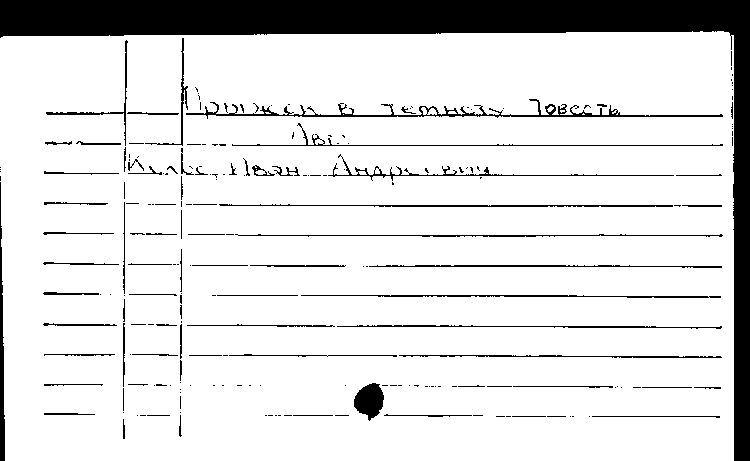 Прыжок в темноту Повесть
Авт.
Иван Андреевич